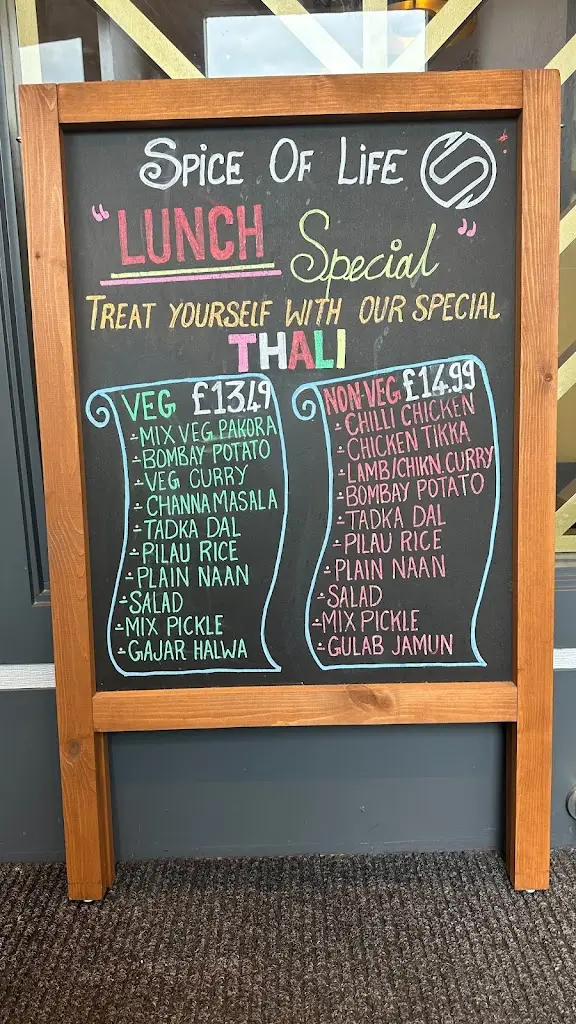 SPICE OF LIFE
"LUNCH Special"
TREAT YOURSELF WITH OUR SPECIAL
THALI
VEG £13.49
- MIX VEG PAKORA
- BOMBAY POTATO
- VEG CURRY
- CHANNA MASALA
- TADKA DAL
- PILAU RICE
- PLAIN NAAN
- SALAD
- MIX PICKLE
- GAJAR HALWA
NON-VEG £14.99
- CHILLI CHICKEN
- CHICKEN TIKKA
- LAMB/CHIKN.CURRY
- BOMBAY POTATO
- TADKA DAL
- PILAU RICE
- PLAIN NAAN
- SALAD
- MIX PICKLE
- GULAB JAMUN